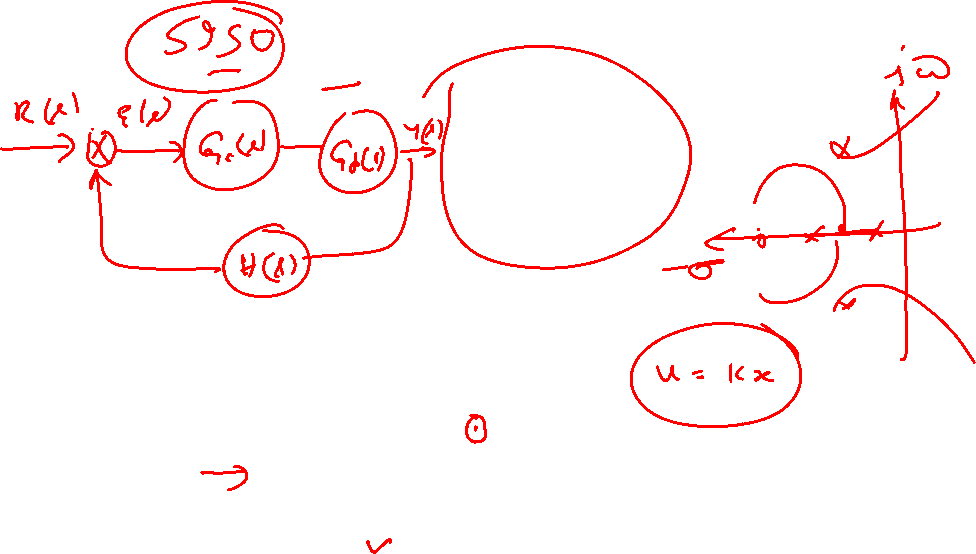 SISO
R(s)
E(s)
Gc(s)
Gp(s)
Y(s)
H(s)
jω
-σ
u = Kx